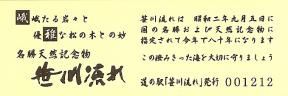 峨峨たる岩々と
優雅な松の木との妙
名勝天然記念物
笹川流れ
笹川流れは 昭和二年九月五日に
国の名勝および天然記念物に
指定されて今年で八十年になります
この澄みきった海を大切に守りましょう
道の駅「笹川流れ」発行 001212